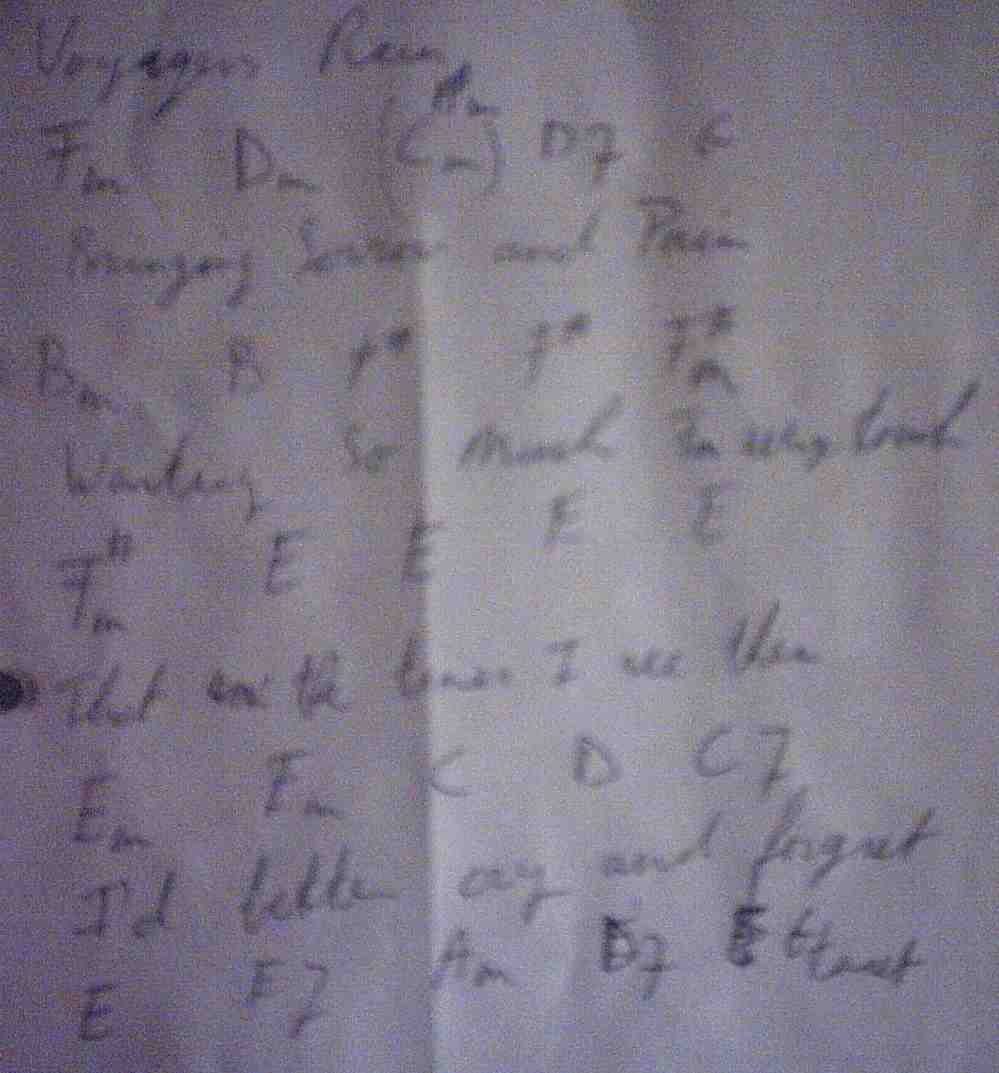 Rain
Am
Fm Dm (Cm) D7 C
Bringing Sorrow and Pain
Bm B F# F# F#m
Wanting So Much
F#m E E E E
That the I see
Em Em C D C7
I'd better cry and forget
E E7 Am D7 E